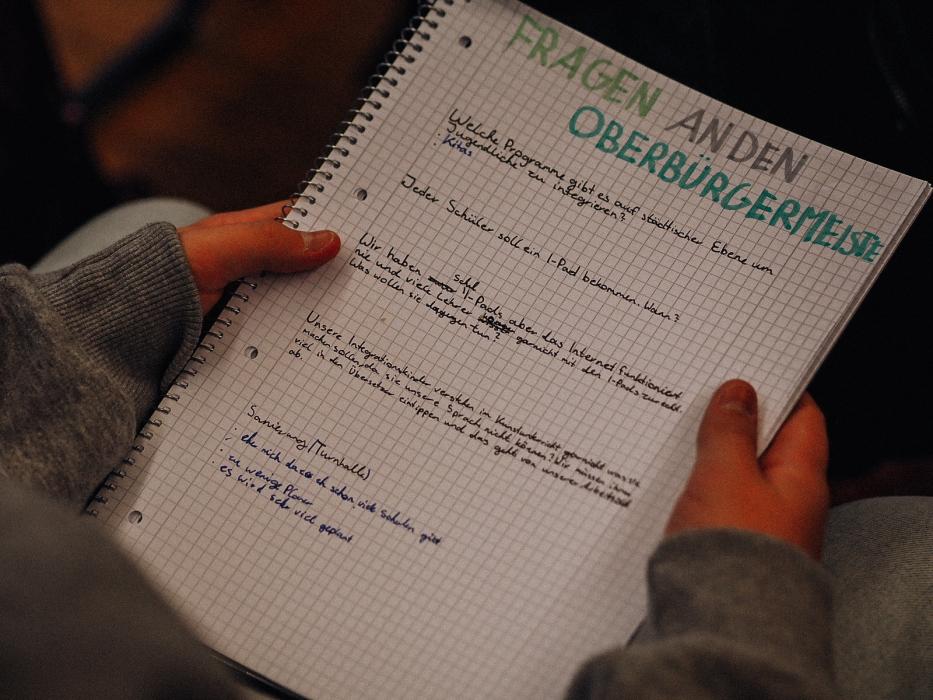 FRAGEN AN DEN
OBERBÜRGERMEISTE
Welche Programme gibt es auf städtischer Ebene um
Jugendliche zu integrieren?
: Kitas
Jeder Schüler soll ein I-Pad bekommen. Wann?
Wir haben schl I-Pads aber das Internet funktioniert
nie und viele Lehrer garnicht mit den I-Pads zurecht.
Was wollen sie dagegen tun?
Unsere Integrationskinder verstehen im Kunstunterricht garnicht was sie
machen sollen, da sie unsere Sprach nicht können? Wir müssen ihnen
viel in den Übersetzer eintippen und das geht von unserer Arbeitszeit
ab.
Sanierung (Turnhalle)
schon viele Schulen gibt
zu wenige Planer
es wird sehr viel geplant